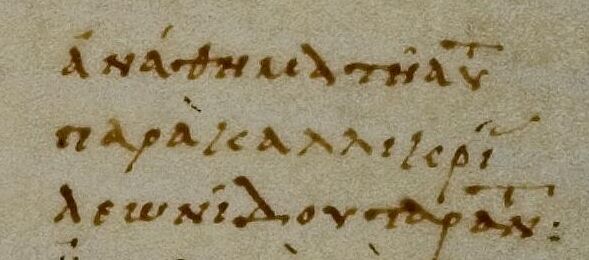 ἀνάθημα τῆ αὐτ
παρὰ καλλικρί
λεωνίδου ταραντ: